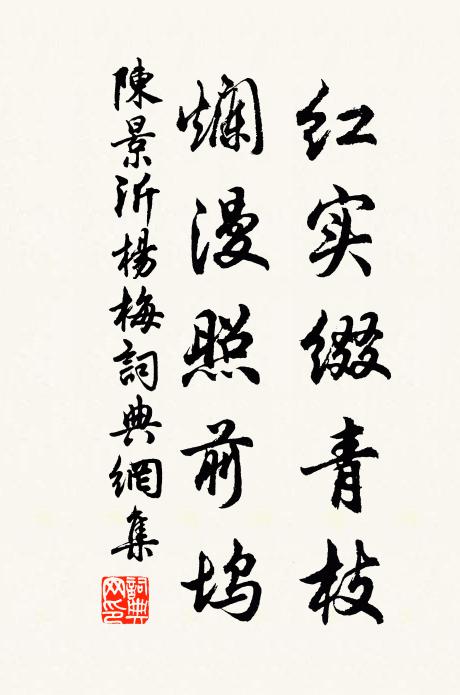 红实缀青枝
爛漫照前坞
陳景沂楊梅詞典網集
詞典網印